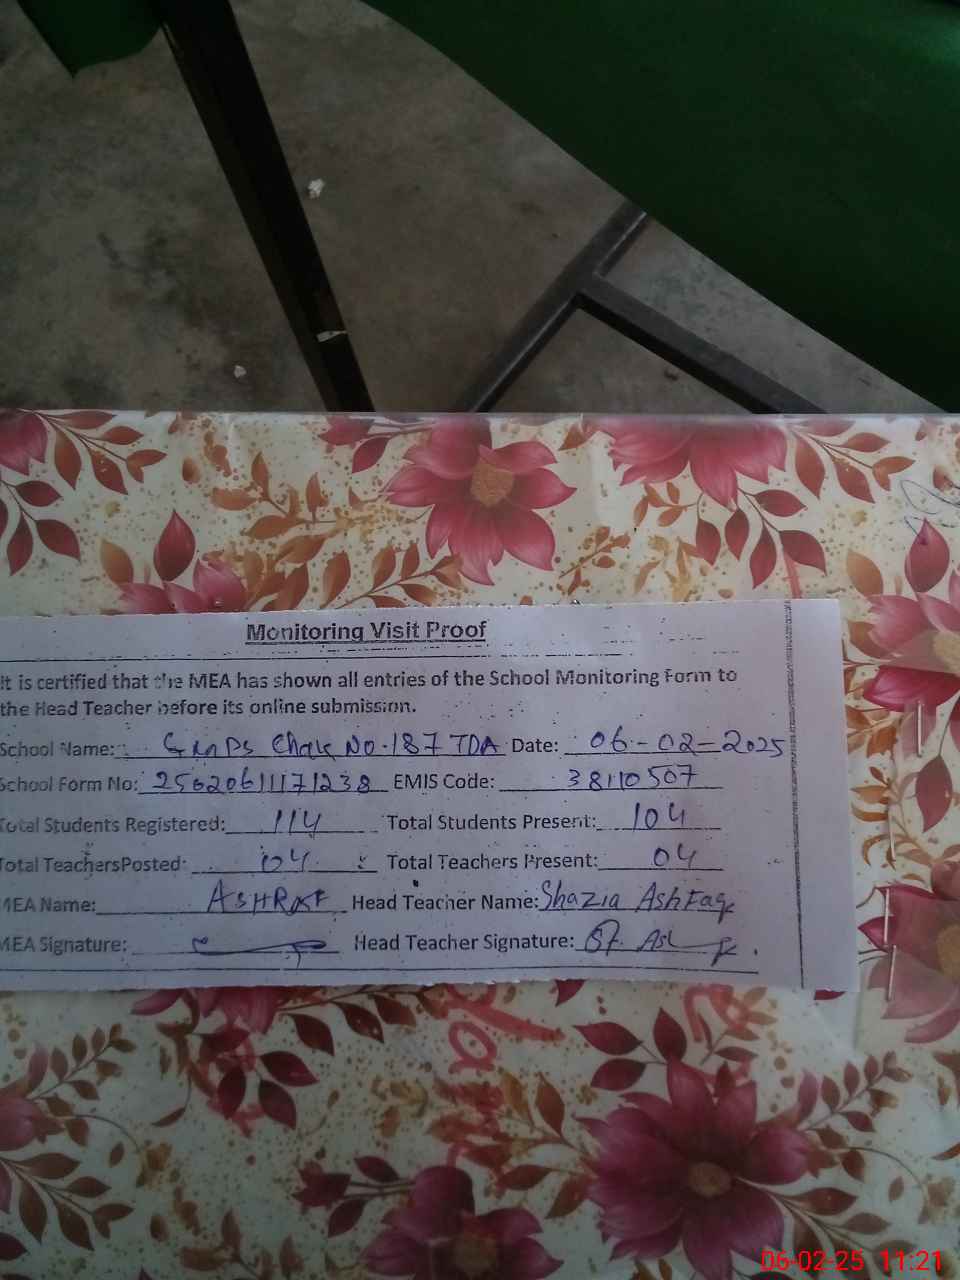 Monitoring Visit Proof
It is certified that the MEA has shown all entries of the School Monitoring Form to
the Head Teacher before its online submission.
School Name: GMPS Chak No.187 TDA Date: 06-02-2025
School Form No: 25020611171238 EMIS Code: 38110507
Total Students Registered: 114 Total Students Present: 104
Total TeachersPosted: 04 Total Teachers Present: 04
MEA Name: ASHRAF Head Teacher Name: Shazia Ashfaq
MEA Signature: Head Teacher Signature:
06-02-25 11:21